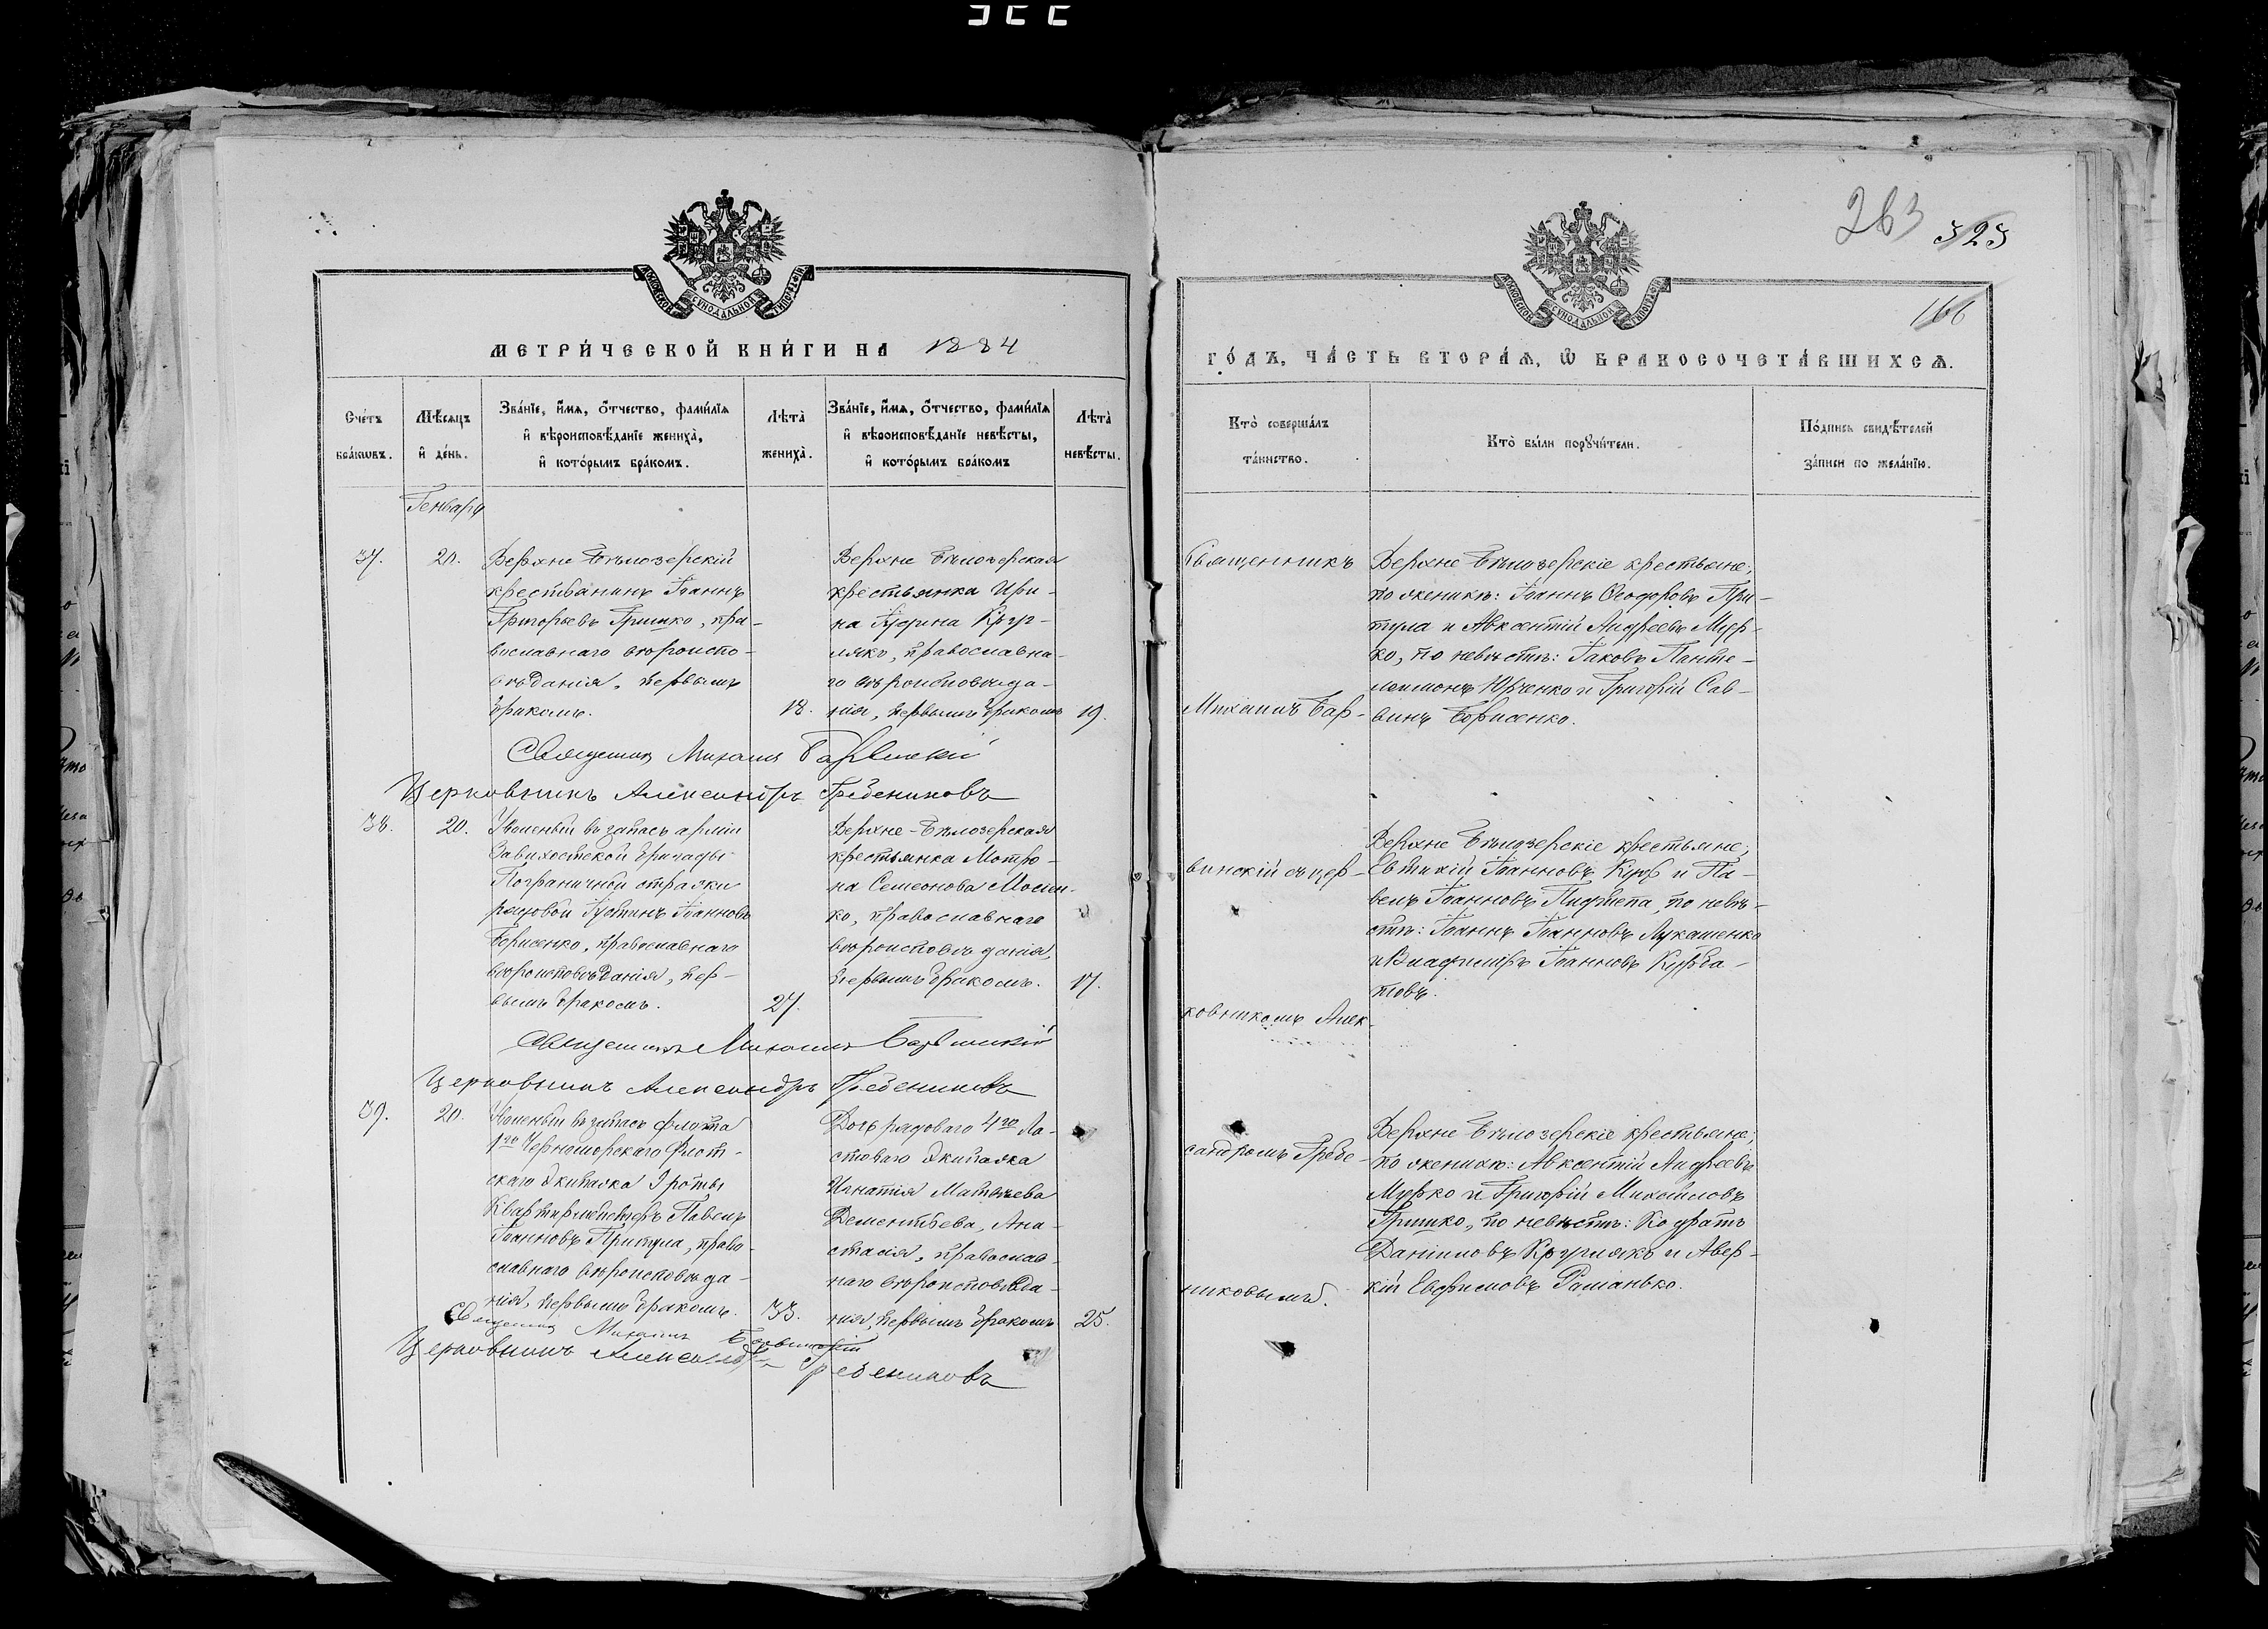 263 323
166
МОСКОВСКОЙ СѴНОДАЛЬНОЙ ТИПОГРАФІИ
МЕТРИ́ЧЕСКОЙ КНИ́ГИ НА 1884
Сче́тъ бра́ковъ.
Мѣ́сяцъ и҆ де́нь.
Зва́нїе, и҆́мѧ, ѻ҆́тчество, фами́лїѧ
и҆ вѣроисповѣ́данїе жениха̀,
и҆ кото́рымъ бра́комъ.
Лѣта̀ жениха̀.
Зва́нїе, и҆́мѧ, ѻ҆́тчество, фами́лїѧ
и҆ вѣроисповѣ́данїе невѣ́сты,
и҆ кото́рымъ бра́комъ
Лѣта̀ невѣ́сты.
Генваря
37.
20.
Верхне Бѣлозерскій
крестьанинъ Іоаннъ
Григорьевъ Гришко, пра-
вославнаго вѣроиспо-
вѣданія, первымъ
бракомъ.
18.
Верхне Бѣлозерская
крестьянка Ири-
на Кругляко, православна-
го вѣроисповѣда-
нія, первымъ бракомъ
19.
Священникъ Михаилъ Барвинскій
Церковникъ Александръ Гребениковъ
38.
20.
Уволеный въ запасъ арміи
Завихостской бригады
Пограничной стражи
рядовой Іустинъ Іоанновъ
Борисенко, православнаго
вѣроисповѣданія, пер-
вымъ бракомъ.
27.
Верхне-Бѣлозерская
крестьянка Мотро-
на Семеонова Мосин-
ко, православнаго
вѣроисповѣданія,
первымъ бракомъ.
17.
Священникъ Михаилъ Барвинскій
Церковникъ Александръ Гребениковъ
39.
20.
Уволеный въ запасъ флота
1го Черноморскаго Флот-
скаго Экипажа 3 роты
Квартирмейстеръ Павелъ
Іоанновъ Притула, право-
славнаго вѣроисповѣда-
нія, первымъ бракомъ.
33.
Дочь рядоваго 4го Ла-
стоваго Экипажа
Игнатія Матвѣева
Дементьева, Ана-
стасія, православ-
наго вѣроисповѣда-
нія, первымъ бракомъ
25.
Священникъ Михаилъ Барвинскій
Церковникъ Александръ Гребениковъ
МОСКОВСКОЙ СѴНОДАЛЬНОЙ ТИПОГРАФІИ
ГО́ДЪ, ЧА́СТЬ ВТОРА́Ѧ, Ѿ БРАКОСОЧЕТА́ВШИХСѦ.
Кто̀ соверша́лъ
та́инство.
Кто̀ бы́ли порꙋчи́тели.
По́дпись свидѣ́телей
за́писи по жела́нїю.
Священникъ
Михаилъ Бар-
винскій съ цер-
ковникомъ Алек-
сандромъ Гребе-
никовымъ.
Верхне Бѣлозерскіе крестьяне;
по женихѣ: Іоаннъ Ѳеодоровъ При-
тула и Авксентій Андреевъ Мур-
ко, по невѣстѣ: Іаковъ Панте-
леимонъ Юрченко и Григорій Сав-
винъ Борисенко.
Верхне Бѣлозерскіе крестьяне;
Евтихій Іоанновъ и Па-
велъ Іоанновъ по невѣ-
стѣ: Іоаннъ Іоанновъ Лукашенко
и Владиміръ Іоанновъ Курба-
товъ.
Верхне Бѣлозерскіе крестьяне;
по женихѣ: Авксентій Андреевъ
Мурко и Григорій Михайловъ
Гришко, по невѣстѣ: Кодратъ
Даніиловъ Кругляко и Авер-
кій Евфимовъ Романько.